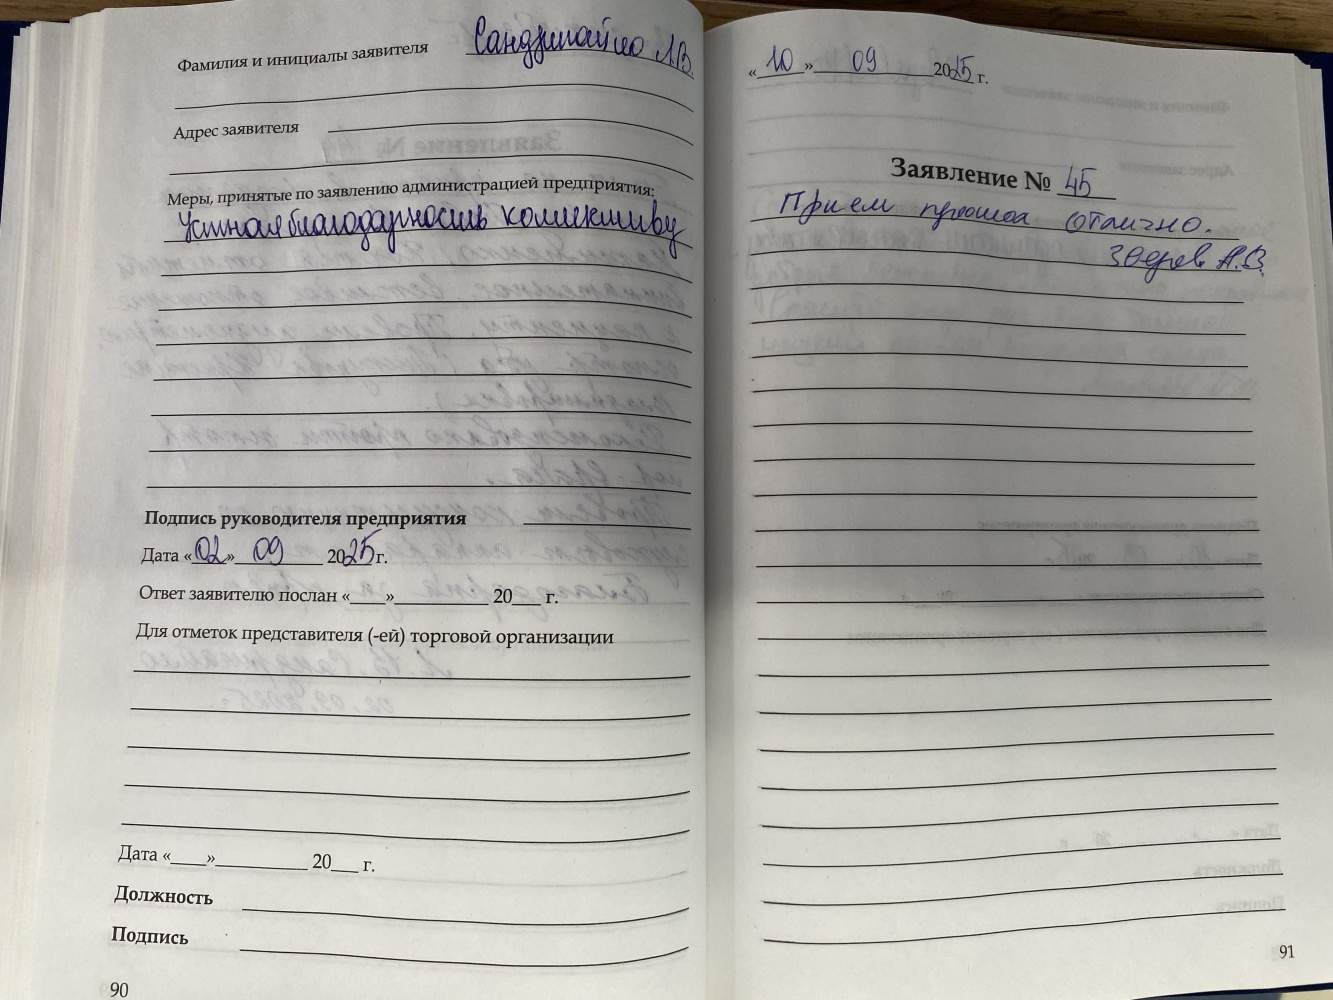 Фамилия и инициалы заявителя Сандринайло Л.В.
Адрес заявителя
Меры, принятые по заявлению администрацией предприятия:
Устная благодарность коллективу
Подпись руководителя предприятия
Дата «02» 09 2025 г.
Ответ заявителю послан «____»__________ 20___ г.
Для отметок представителя (-ей) торговой организации
Дата «____»__________ 20___ г.
Должность
Подпись
90
«10» 09 2025 г.
Заявление № 45
Прием прошел отлично.
А.В.
91